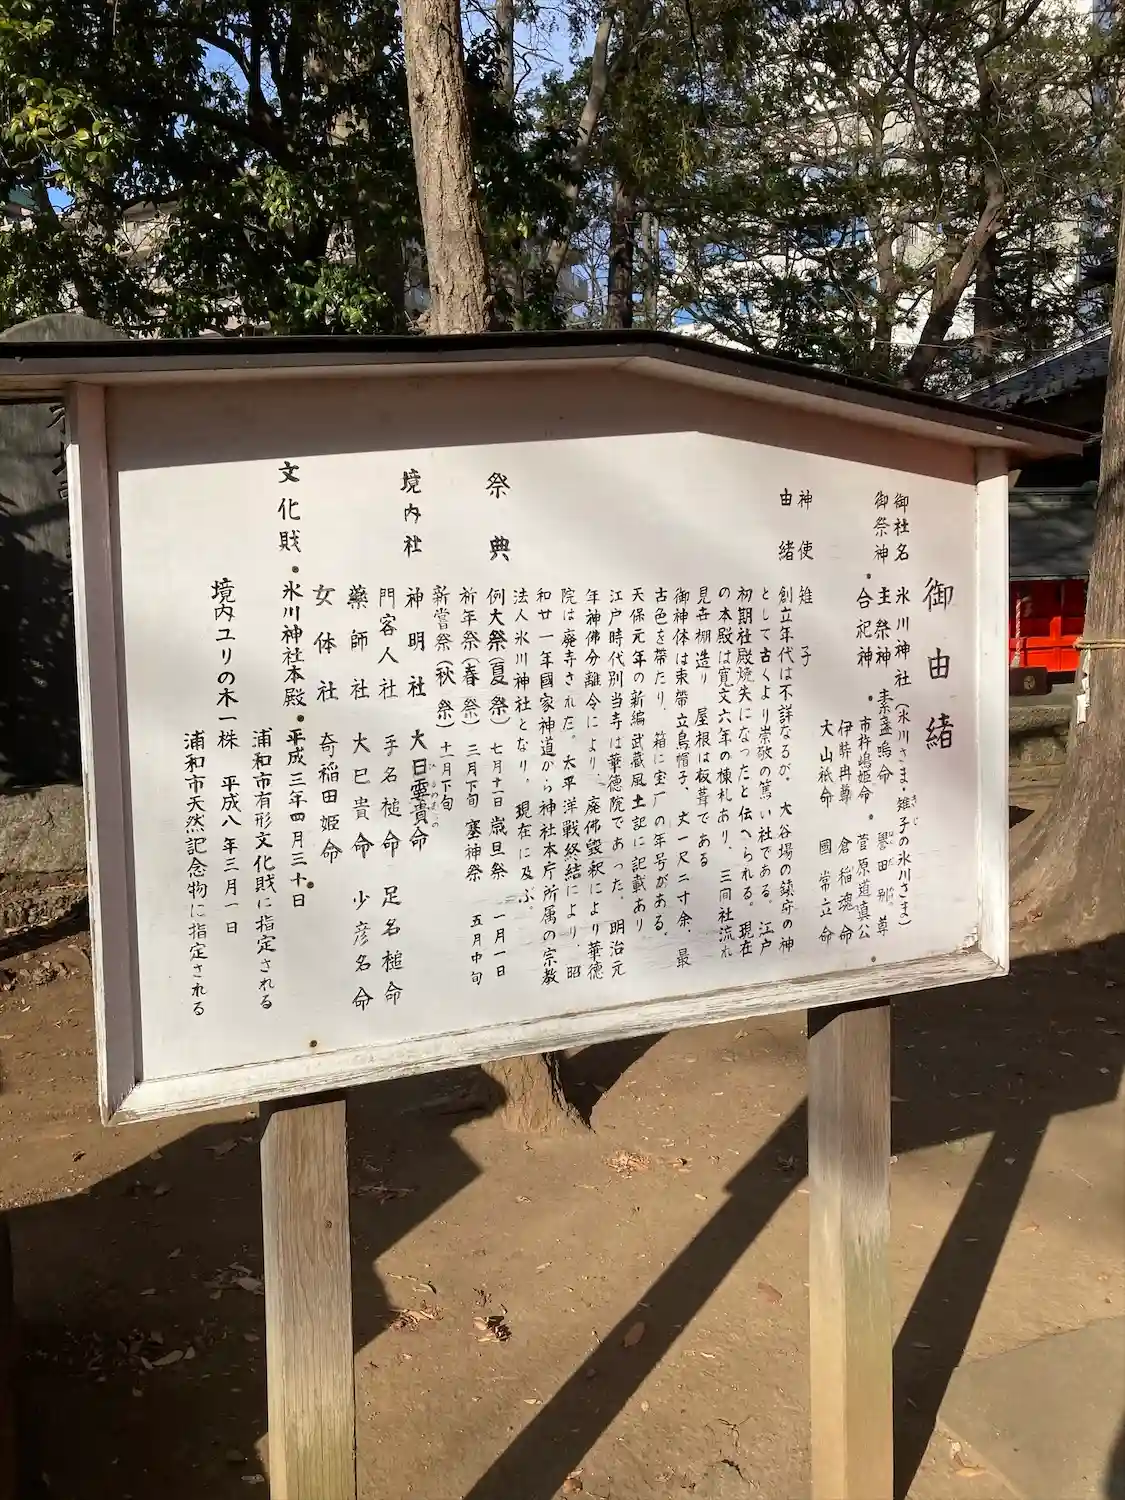 御由緒
御社名 氷川神社(氷川さま・雉子の氷川さま)
きじ
御祭神・主祭神 素盞嗚命
・合祀神・市杵嶋姫命・譽田別尊
伊弉冉尊 菅原道真公
大山祇命 倉稲魂命
國常立命
神使 雉子
由緒 創立年代は不詳なるが、大谷場の鎮守の神
として古くより崇敬の篤い社である。江戸
初期社殿焼失になったと伝へられる。現在
の本殿は寛文六年の棟札あり、三間社流れ
見世棚造り 屋根は板葺である
御神体は束帯立烏帽子、丈一尺二寸余、最
古色を帯たり、箱に宝
の年号がある。
天保元年の新編武蔵風土記に記載あり
江戸時代別当寺は華徳院であった。明治元
年神佛分離令により、廃佛毀釈により華徳
院は廃寺された。太平洋戦終結により、昭
和廿一年國家神道から神社本庁所属の宗教
法人氷川神社となり、現在に及ぶ。
祭典 例大祭(夏祭)七月十一日 歳旦祭 一月一日
祈年祭(春祭)三月下旬 塞神祭 五月中旬
新嘗祭(秋祭)十一月下旬
境内社 神明社 大日孁貴命
門客人社 手名槌命 足名槌命
藥師社 大巳貴命 少彦名命
女体社 奇稲田姫命
文化財・氷川神社本殿・平成三年四月三十日
浦和市有形文化財に指定される
境内ユリの木一株 平成八年三月一日
浦和市天然記念物に指定される